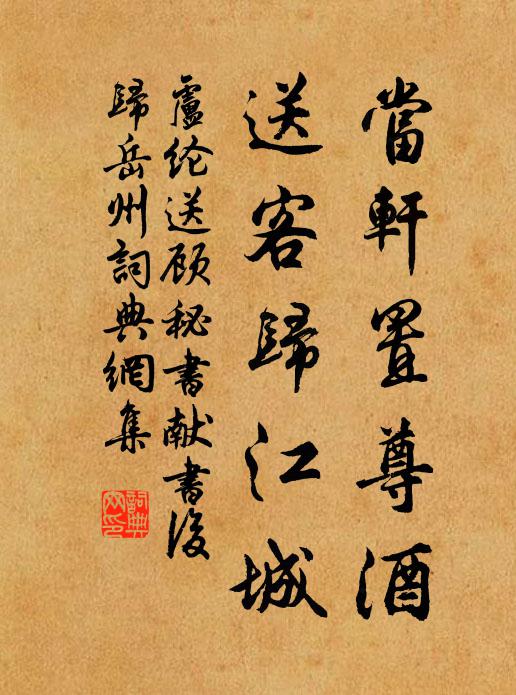 當軒置尊酒
送客歸江城
盧纶送顾秘書献書後
歸岳州詞典網集
詞典網印